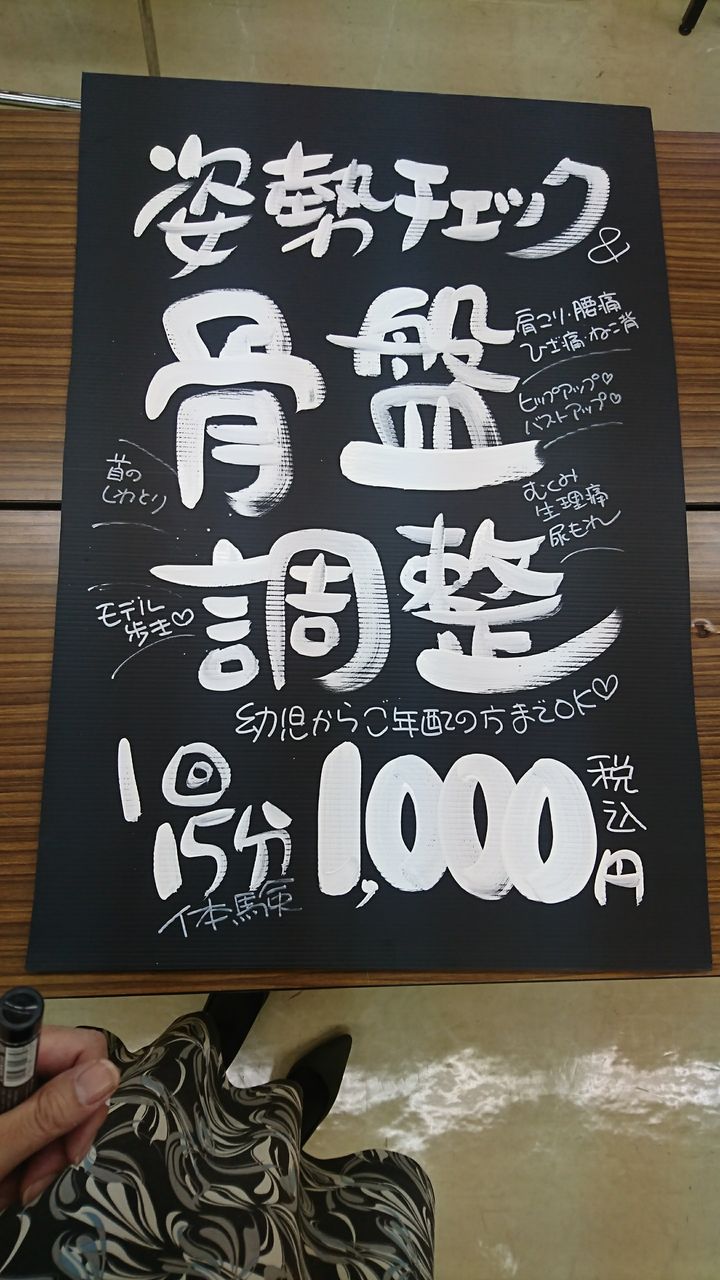 姿勢チェック&
骨盤
肩こり・腰痛
ひざ痛・ねこ背
ヒップアップ♡
バストアップ♡
首の
しわとり
むくみ
生理痛
尿もれ
調整
モデル
歩き♡
幼児からご年配の方までOK♡
1回
15分
体験
1,000円
税込